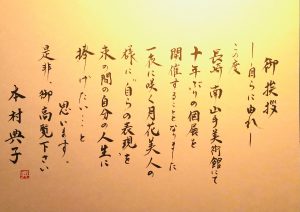 御挨拶
―自らに由れ―
この度
長崎 南山手美術館にて
十年ぶりの個展を
開催することとなりました
一夜に咲く月花美人の
様に“自らの表現”を
束の間の自分の人生に
捧げたい…と
思います。
是非、御高覧下さい
本村典子